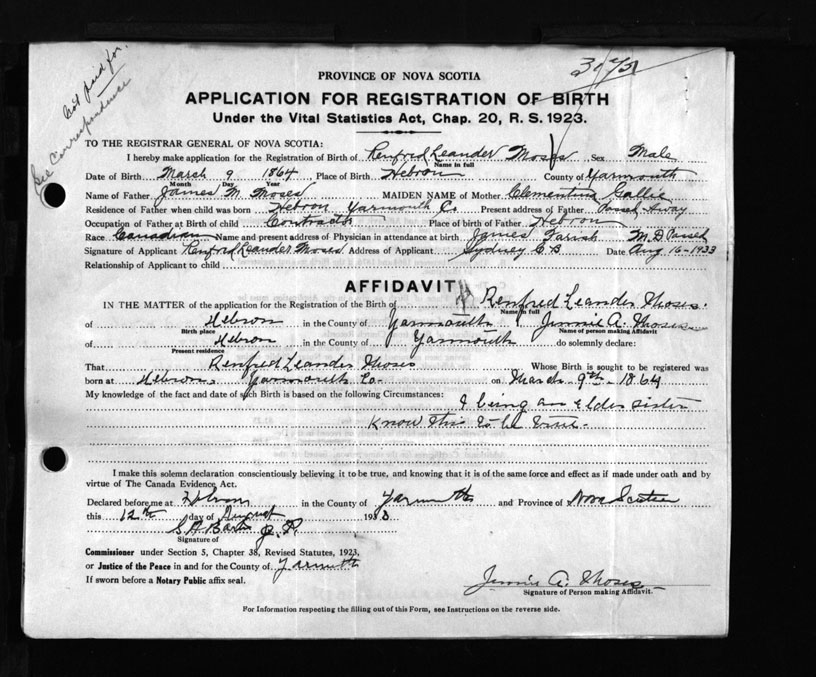 Not paid for.
See Correspondence
PROVINCE OF NOVA SCOTIA
APPLICATION FOR REGISTRATION OF BIRTH
Under the Vital Statistics Act, Chap. 20, R. S. 1923.
TO THE REGISTRAR GENERAL OF NOVA SCOTIA:
I hereby make application for the Registration of Birth of Renfred Leander Moses Sex Male
Name in full
Date of Birth March 9 1864 Place of Birth Hebron County of Yarmouth
Month Day Year
Name of Father James M. Moses MAIDEN NAME of Mother Clementina
Residence of Father when child was born Hebron Yarmouth Co Present address of Father Passed Away
Occupation of Father at Birth of child Place of birth of Father Hebron
Race Canadian Name and present address of Physician in attendance at birth James Farish M.D Passed
Signature of Applicant Renfred Leander Moses Address of Applicant Sydney C B Date Aug 16-1933
Relationship of Applicant to child
AFFIDAVIT
IN THE MATTER of the application for the Registration of the Birth of Renfred Leander Moses.
Name in full
of Hebron in the County of Yarmouth I, Jennie A. Moses
Birth place Name of person making Affidavit
of Hebron in the County of Yarmouth do solemnly declare:
Present residence
That Renfred Leander Moses Whose Birth is sought to be registered was
born at Hebron, Yarmouth Co- on March 9th- 1864
My knowledge of the fact and date of such Birth is based on the following Circumstances:
I being an elder sister
know this to be true-
I make this solemn declaration conscientiously believing it to be true, and knowing that it is of the same force and effect as if made under oath and by
virtue of The Canada Evidence Act.
Declared before me at Hebron in the County of Yarmouth and Province of Nova Scotia
this 12th day of August 1933
J.P.
Signature of
Commissioner under Section 5, Chapter 38, Revised Statutes, 1923,
or Justice of the Peace in and for the County of Yarmouth
If sworn before a Notary Public affix seal.
Jennie A. Moses
Signature of Person making Affidavit.
For Information respecting the filling out of this Form, see Instructions on the reverse side.